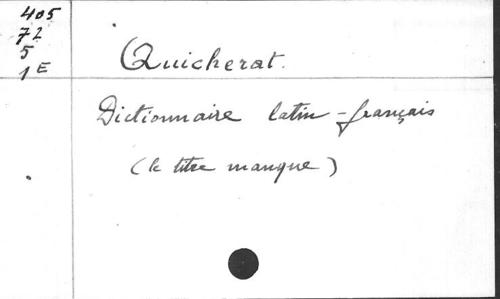 405
72
5
1E
Quicherat.
Dictionnaire latin-français
(le titre manque)